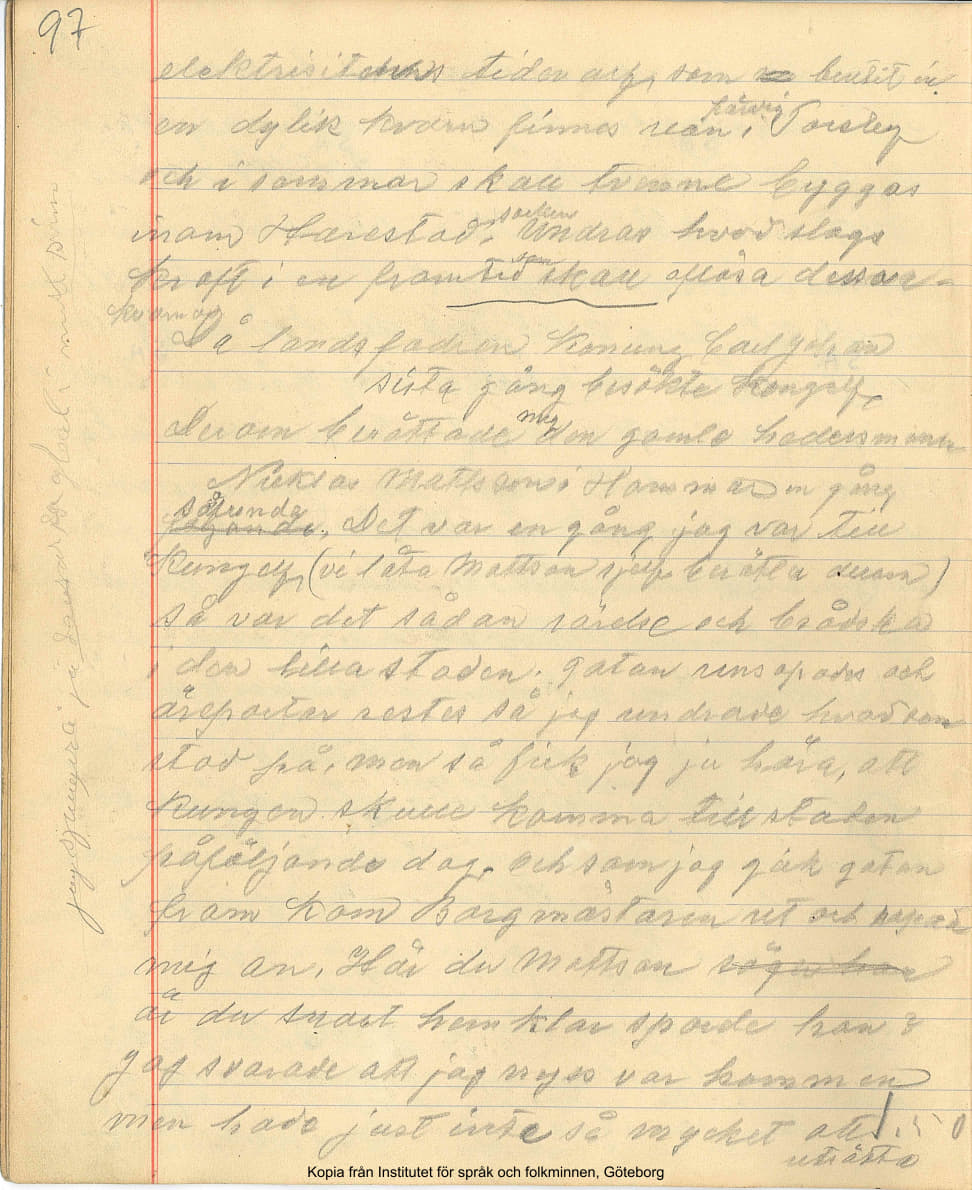 97
elektrisitetens tiden och, som benlit in
en dylik kvarn finnes redan färdig i Torsby
och i sommar skall tvenne byggas
inom Harestad socken. Undras hvad slags
kraft i en framtid som skall aflösa dessa
kvarnar
Då landsfadren Konung Carl Johan
sista gång besökte Kongelf,
Derom berättade mig den gamle hedersmann
Nicklas Mattsson i Hammar en gång
såfunda. Det var en gång jag var till
Kungelf, (vi låta Mattson sjelf berätta derom)
så var det sådan rörelse och brådska
i den lilla staden. gatan rensopades och
äreportar restes så jag undrade hvad som
stod på, men så fick jag ju höra, att
Kungen skulle komma till staden
påföljande dag. och som jag gick gatan
fram kom Borgmästaren ut och ropade
mig an. Hör du Mattson säger han
är du snart hemklar sporde han?
Jag svarade att jag nyss var kommen
men hade just inte så mycket att
uträtta
Kopia från Institutet för språk och folkminnen, Göteborg